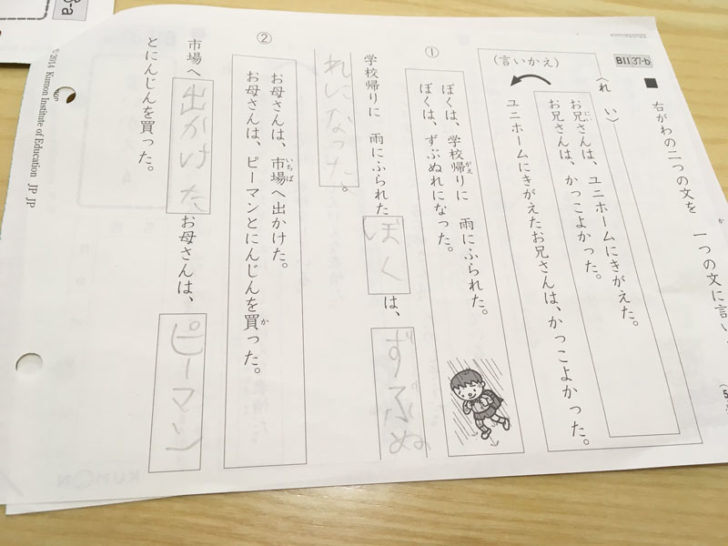 BⅡ37-b
■ 右がわの二つの文を 一つの文に言い
〈れい〉
お兄さんは、ユニホームにきがえた。
お兄さんは、かっこよかった。
(言いかえ)
ユニホームにきがえたお兄さんは、かっこよかった。
①
ぼくは、学校帰りに 雨にふられた。
ぼくは、ずぶぬれになった。
学校帰りに 雨にふられた ぼく は、 ずぶぬ
れになった。
②
お母さんは、市場へ出かけた。
お母さんは、ピーマンとにんじんを買った。
市場へ 出かけた お母さんは、 ピーマン
とにんじんを買った。
©2014 Kumon Institute of Education JP JP